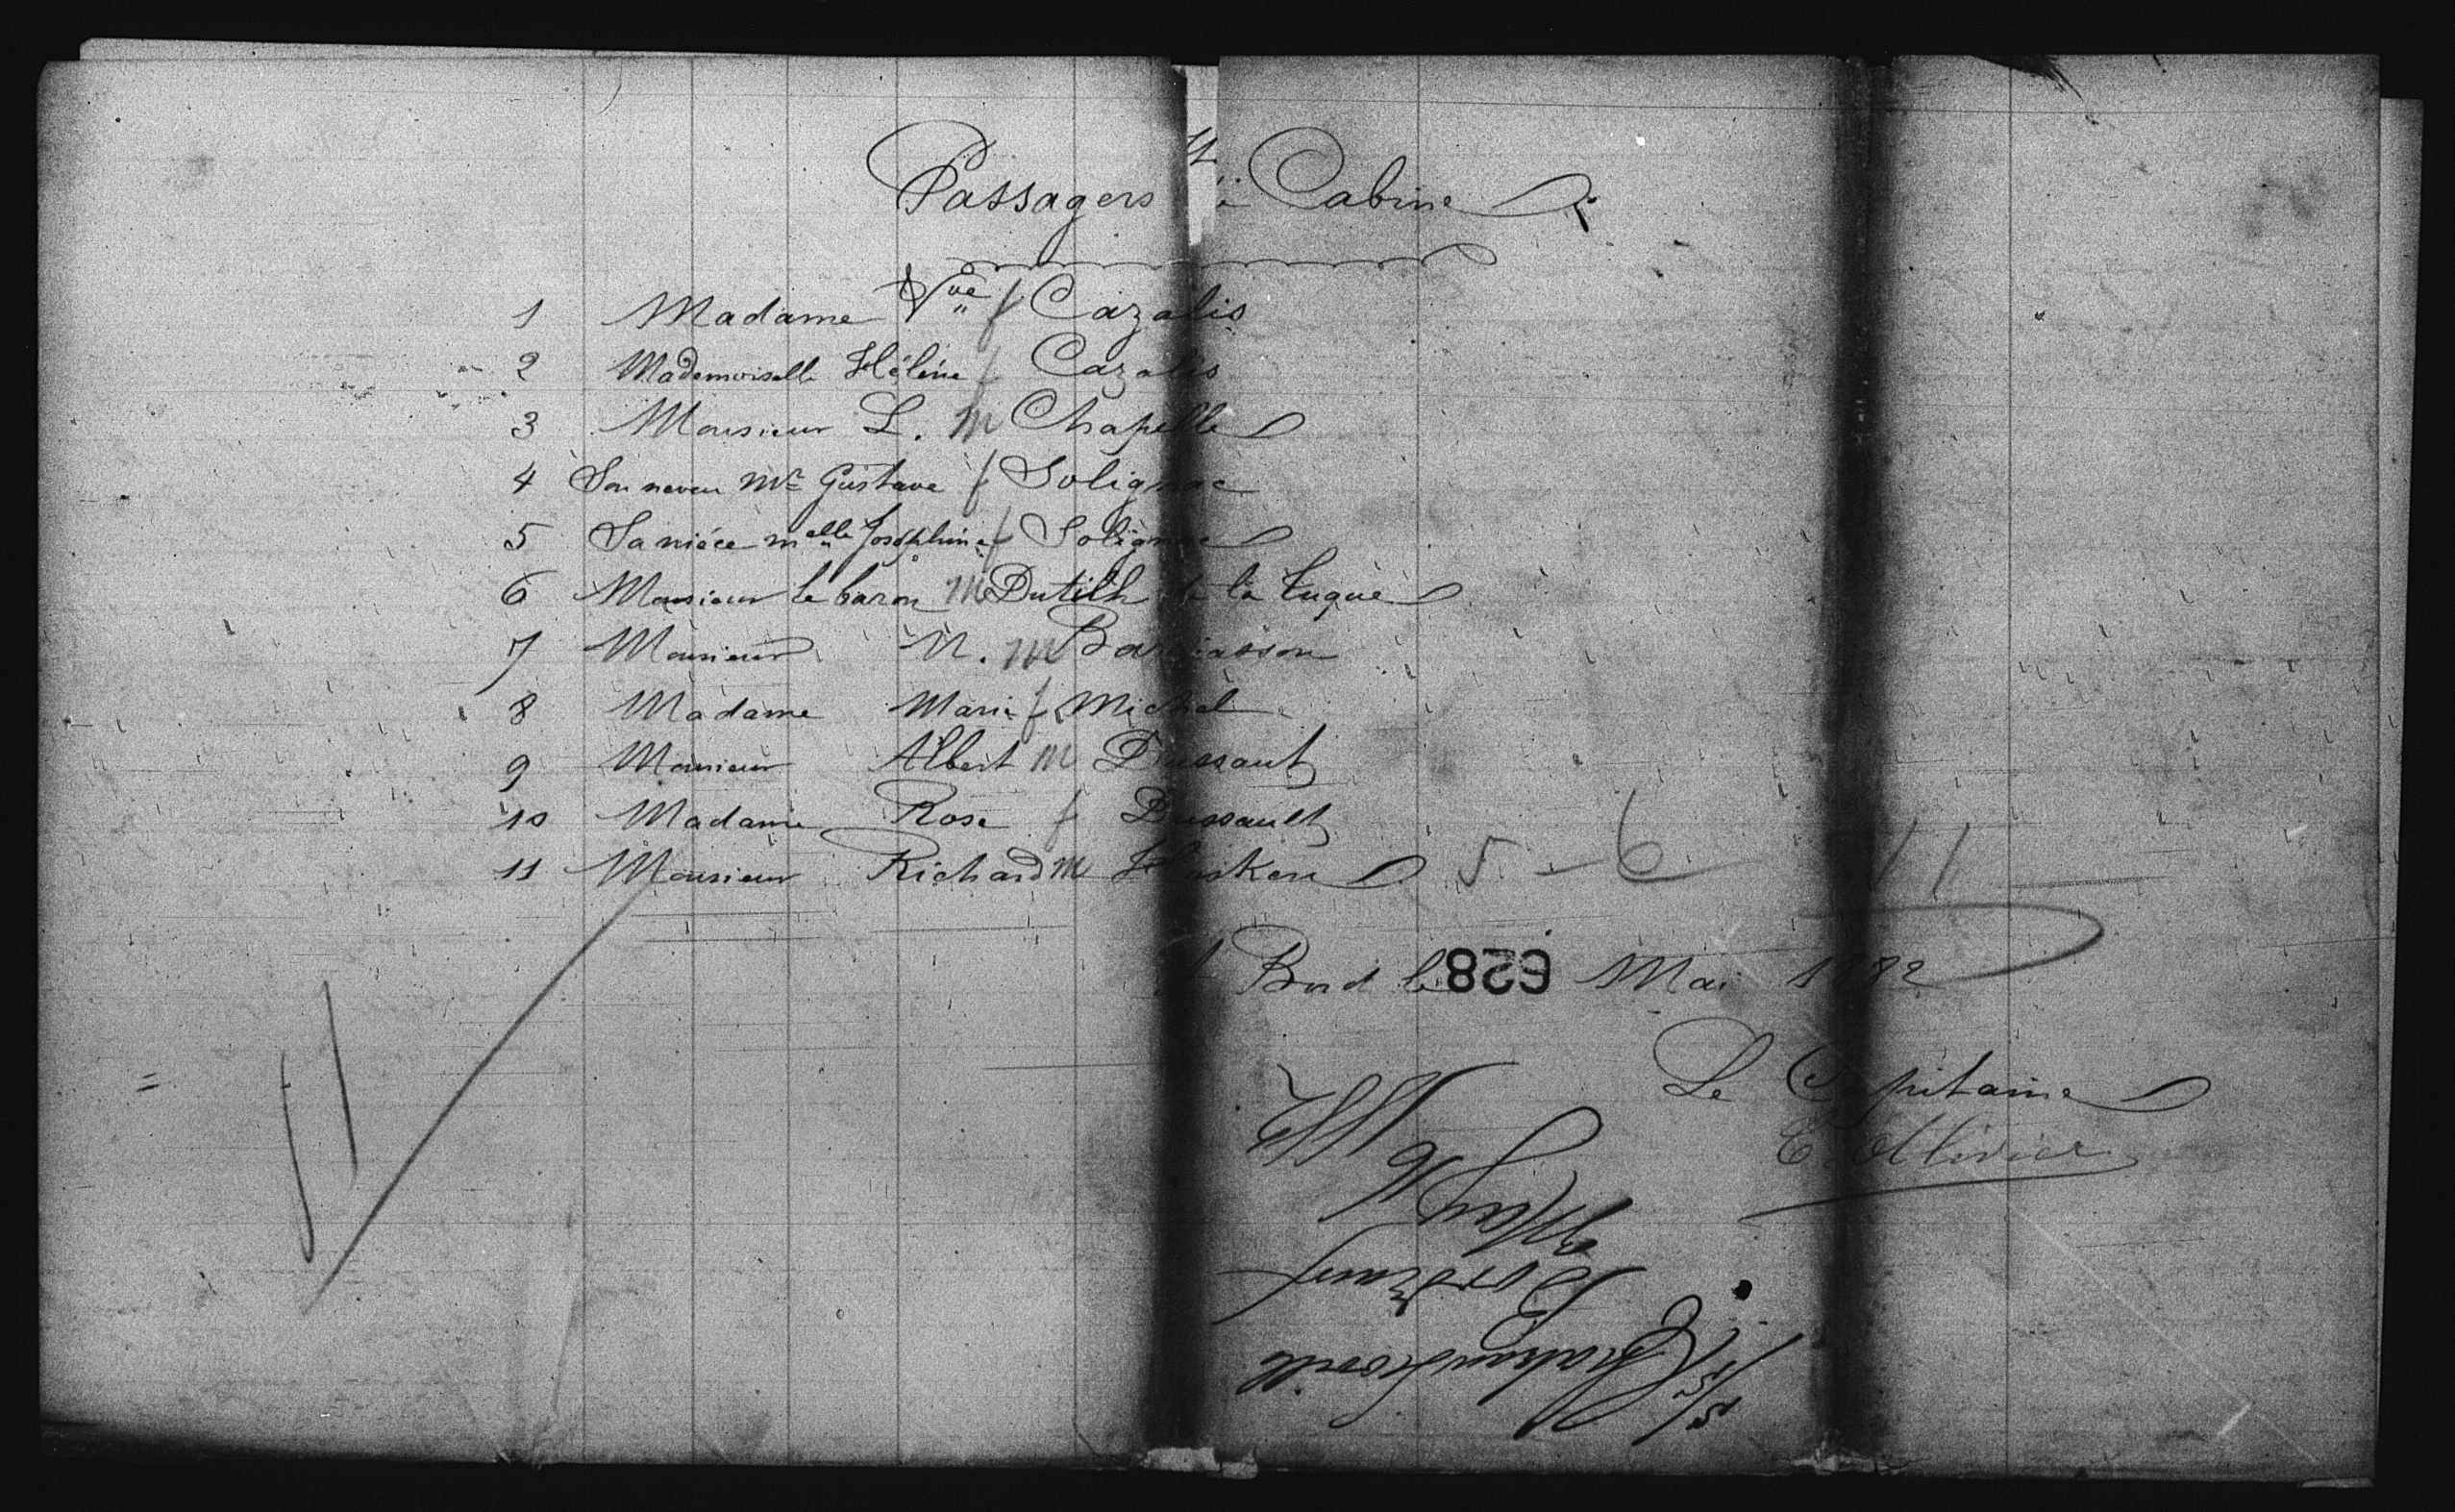 Passagers de Cabine
1 Madame Vve f Cazalis
2 Mademoiselle Hélène f Cazalis
3 Monsieur L. m Chapelle
4 Son neveu Mr Gustave f Solignac
5 Sa nièce Melle Joséphine f Solignac
6 Monsieur le baron m Dutilh de la Tuque
7 Monsieur N. m
8 Madame Marie f Michel
9 Monsieur Albert m Dussaut
10 Madame Rose f Dussault
11 Monsieur Richard m
5 - 6 11
Bord le 628 Mai 1882
Le Capitaine
E. Ollivier
11
S/S Chateau Leoville
Bordeaux
May 16